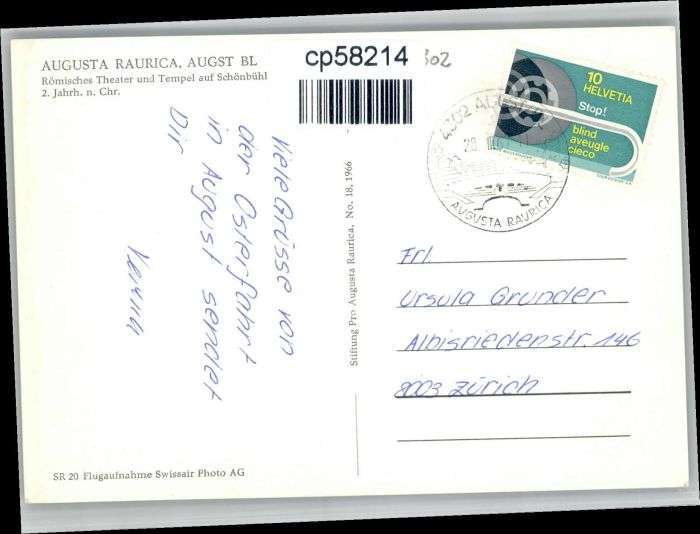 AUGUSTA RAURICA, AUGST BL
Römisches Theater und Tempel auf Schönbühl
2. Jahrh. n. Chr.
cp58214
302
10
HELVETIA
Stop!
blind
aveugle
cieco
4302 AUGST
AUGUSTA RAURICA
Viele Grüsse von
der Osterfahrt
in August sendet
Dir
Verena
Stiftung Pro Augusta Raurica, No. 18, 1966
Frl
Ursula Grunder
Albisriedenstr. 146
8003 Zürich
SR 20 Flugaufnahme Swissair Photo AG